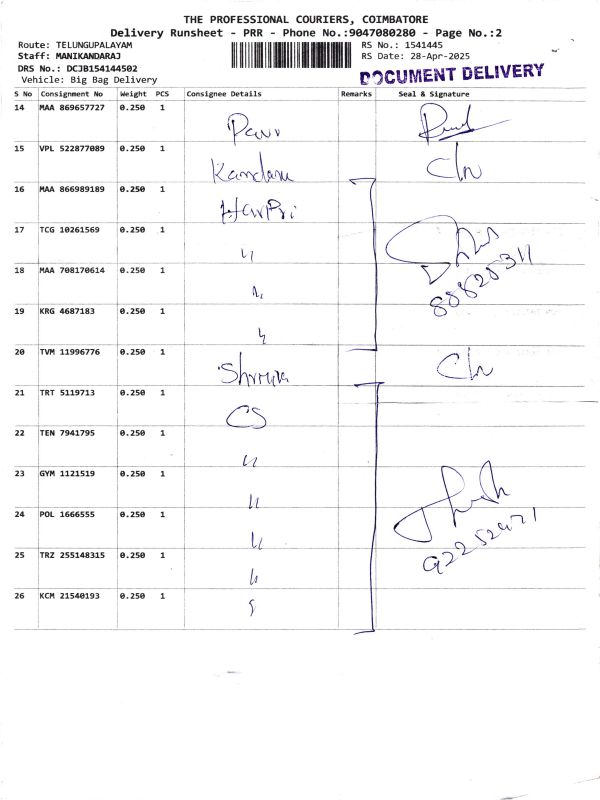 THE PROFESSIONAL COURIERS, COIMBATORE
Delivery Runsheet - PRR - Phone No.:9047080280 - Page No.:2
Route: TELUNGUPALAYAM
Staff: MANIKANDARAJ
DRS No.: DCJB154144502
Vehicle: Big Bag Delivery
RS No.: 1541445
RS Date: 28-Apr-2025
DOCUMENT DELIVERY
S No Consignment No Weight PCS Consignee Details Remarks Seal & Signature
14 MAA 869657727 0.250 1
15 VPL 522877089 0.250 1
16 MAA 866989189 0.250 1
17 TCG 10261569 0.250 1
18 MAA 708170614 0.250 1
19 KRG 4687183 0.250 1
20 TVM 11996776 0.250 1
21 TRT 5119713 0.250 1 CS
22 TEN 7941795 0.250 1
23 GYM 1121519 0.250 1
24 POL 1666555 0.250 1
25 TRZ 255148315 0.250 1
26 KCM 21540193 0.250 1